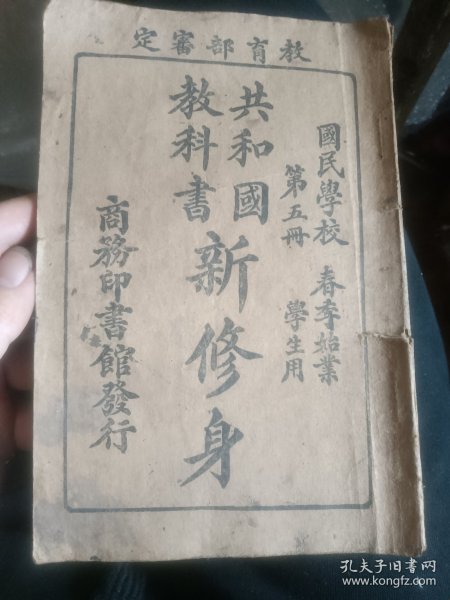 教育部審定
國民學校 春季始業
第五冊 學生用
共和國
教科書
新修身
商務印書館發行
孔夫子旧书网
www.kongfz.com